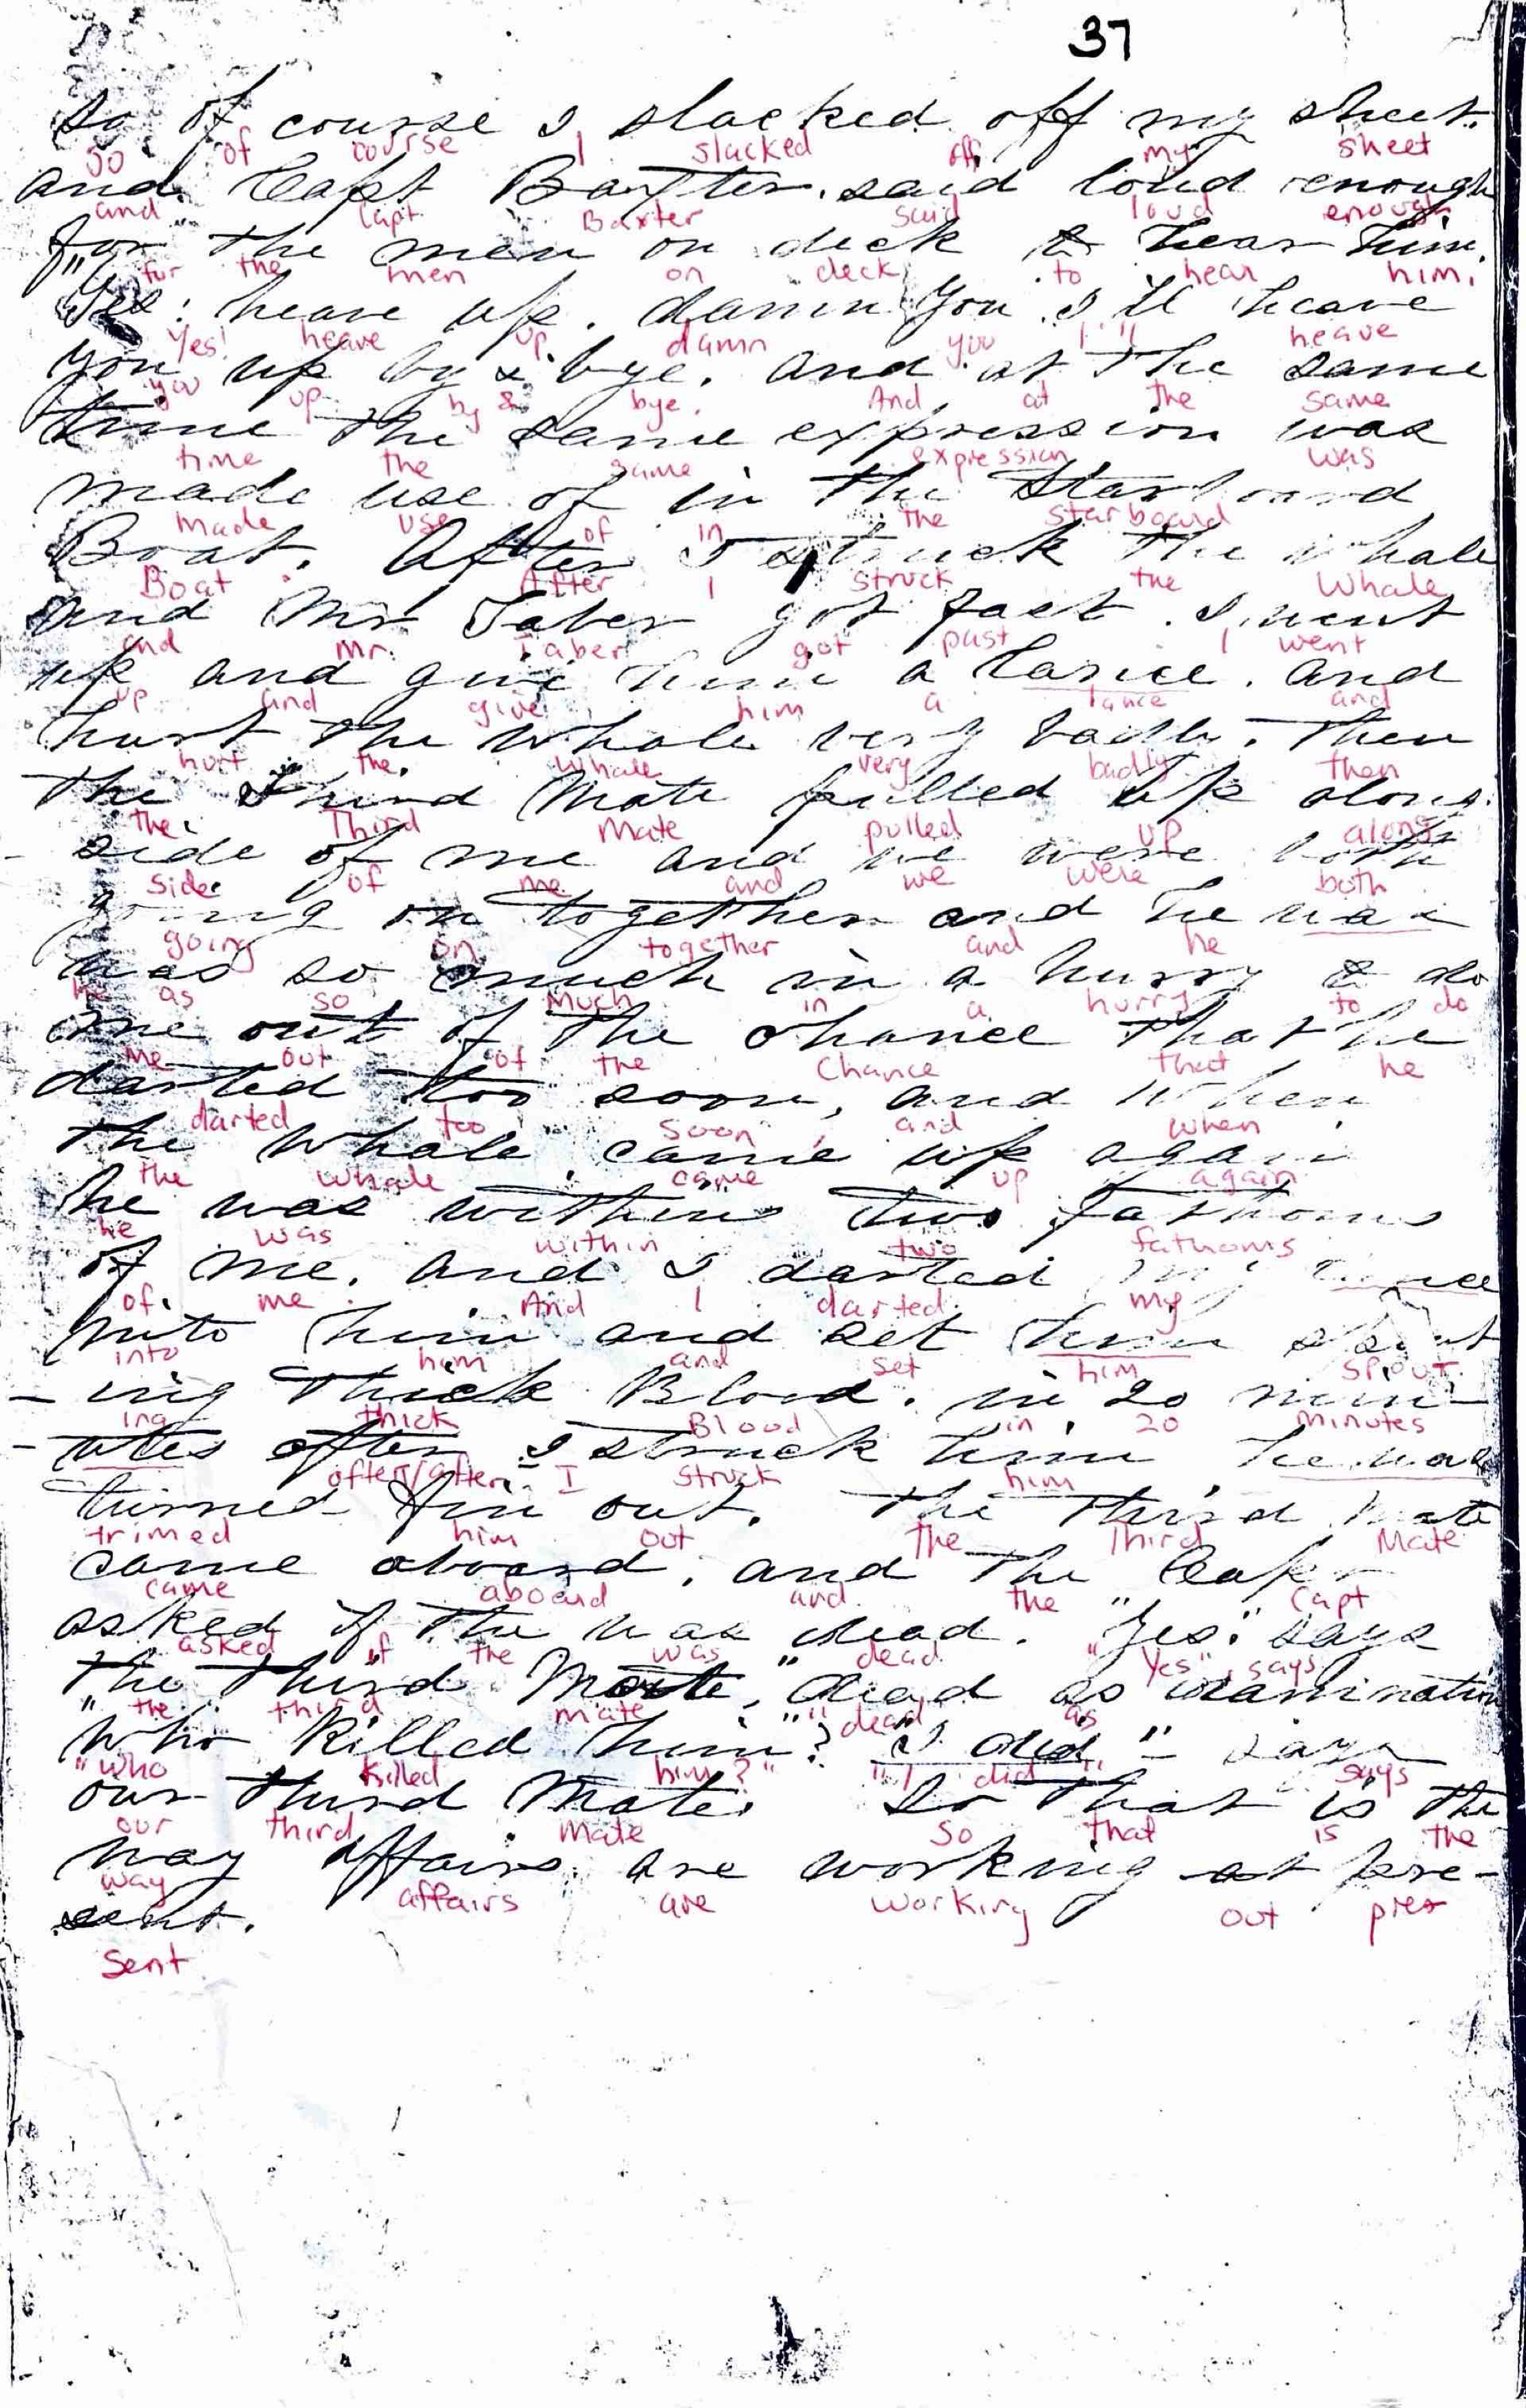 37
so of course I slacked off my sheet.
so of course I slacked off my sheet
and Capt Baxter. said loud enough
and Capt Baxter said loud enough
for the men on deck to hear him.
for the men on deck to hear him.
"Yes: heave up. damn you I'll heave
Yes! heave up damn you I'll heave
you up by & bye. and at the same
you up by & bye. And at the same
time the same expression was
time the same expression was
made use of in the Starboard
made use of in the starboard
Boat. After I struck the whale
Boat. After I struck the Whale
and Mr Taber got fast. I went
and Mr. Taber got past I went
up and give him a lance. and
up and give him a lance and
hurt the whale very badly. then
hurt the whale very badly then
the Third Mate pulled up along
the Third Mate pulled up along
- side of me and we were both
side of me and we were both
going on together and he was
going on together and he
was so much in a hurry to do
he as so much in a hurry to do
me out of the chance that he
me out of the Chance that he
darted too soon, and when
darted too soon, and when
the whale came up again
the whale came up again
he was within two fathoms
he was within two fathoms
of me. and I darted my lance
of me. And I darted my
into him and set him spout
into him and set him spout
- ing thick Blood. in 20 min-
ing thick Blood in 20 minutes
- utes after I struck him he was
often/after I struck him
turned fin out. the third Mate
trimed him out The Third Mate
came aboard, and the Capt
came aboard and the Capt
asked if the was dead. "Yes" says
asked if the was dead "Yes", says
the third Mate, "dead as
the third mate "dead as
"Who killed him"? "I did" - says
"who killed him?" "I did" says
our third Mate. So that is the
our third Mate So that is the
way affairs are working at pre-
way affairs are working out pres
sent.
sent